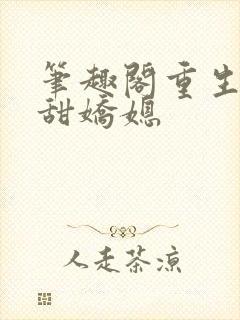 筆趣閣重生
甜嬌媳
人走茶涼